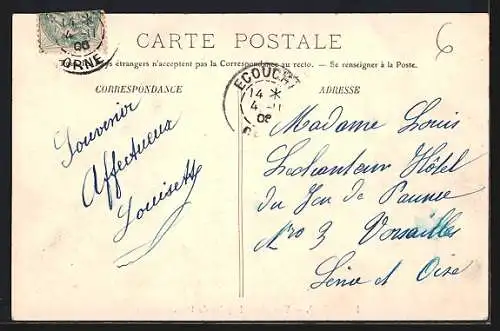 14 *
4 - 11
06
ORNE
CARTE POSTALE
étrangers n'acceptent pas la Correspondance au recto. — Se renseigner à la Poste.
CORRESPONDANCE
ADRESSE
6
ECOUCHÉ
14 *
4 - 11
Souvenir
Affectueux
Louisette
Madame Louis
Lechanteur Hôtel
du Jeu de Paume
Nro 3 Versailles
Seine et Oise